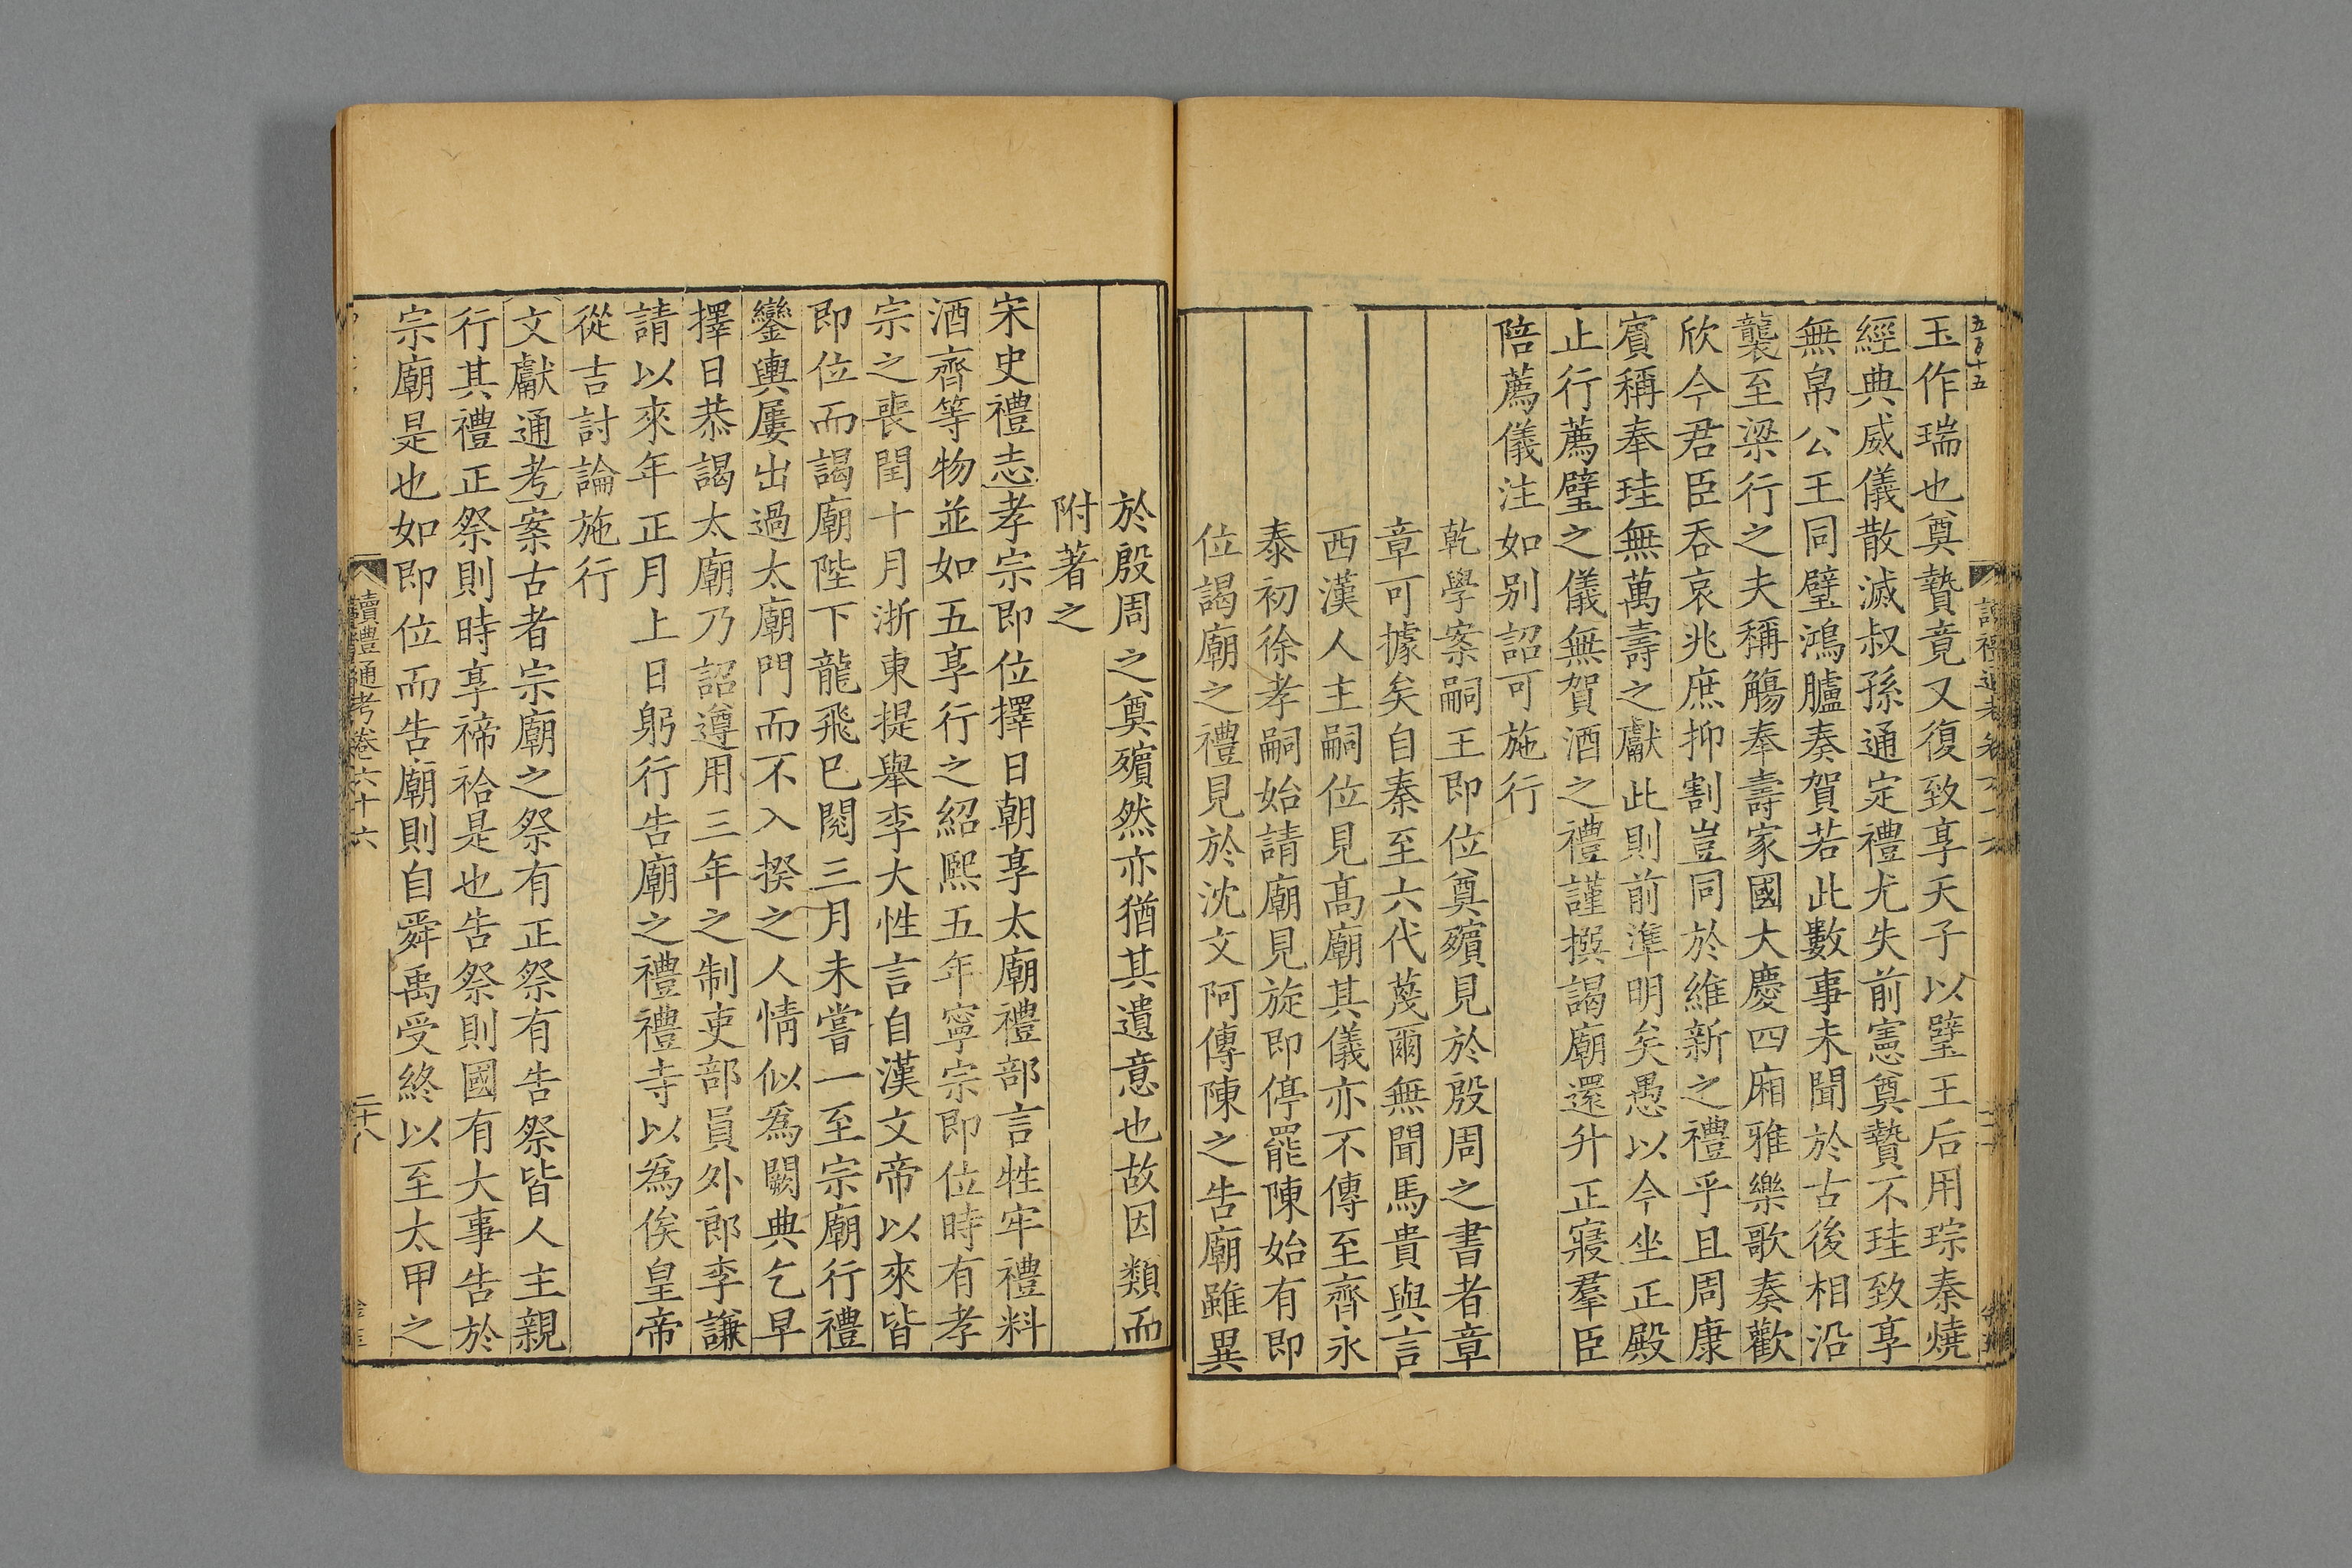 五百十五
玉作瑞也奠贄竟又復致享天子以璧王后用琮秦燒
經典威儀散滅叔孫通定禮尤失前憲奠贄不珪致享
無帛公王同璧鴻臚奏賀若此數事未聞於古後相沿
襲至梁行之夫稱觴奉壽家國大慶四廂雅樂歌奏歡
欣今君臣吞哀兆庶抑割豈同於維新之禮乎且周康
賓稱奉珪無萬壽之獻此則前準明矣愚以今坐正殿
止行薦璧之儀無賀酒之禮謹撰謁廟還升正寢羣臣
陪薦儀注如别詔可施行
乾學案嗣王即位奠殯見於殷周之書者章
章可據矣自秦至六代蔑爾無聞馬貴與言
西漢人主嗣位見髙廟其儀亦不傳至齊永
泰初徐孝嗣始請廟見旋即停罷陳始有即
位謁廟之禮見於沈文阿傳陳之告廟雖異
於殷周之奠殯然亦猶其遺意也故因類而
附著之
宋史禮志孝宗即位擇日朝享太廟禮部言牲牢禮料
酒齊等物並如五享行之紹熙五年寧宗即位時有孝
宗之喪閏十月浙東提舉李大性言自漢文帝以來皆
即位而謁廟陛下龍飛巳閱三月未嘗一至宗廟行禮
鑾輿屢出過太廟門而不入揆之人情似爲闕典乞早
擇日恭謁太廟乃詔遵用三年之制吏部員外郎李謙
請以來年正月上日躬行告廟之禮禮寺以爲俟皇帝
從吉討論施行
文獻通考案古者宗廟之祭有正祭有告祭皆人主親
行其禮正祭則時享禘祫是也告祭則國有大事告於
宗廟是也如即位而告廟則自舜禹受終以至太甲之
讀禮通考卷六十六
二十八